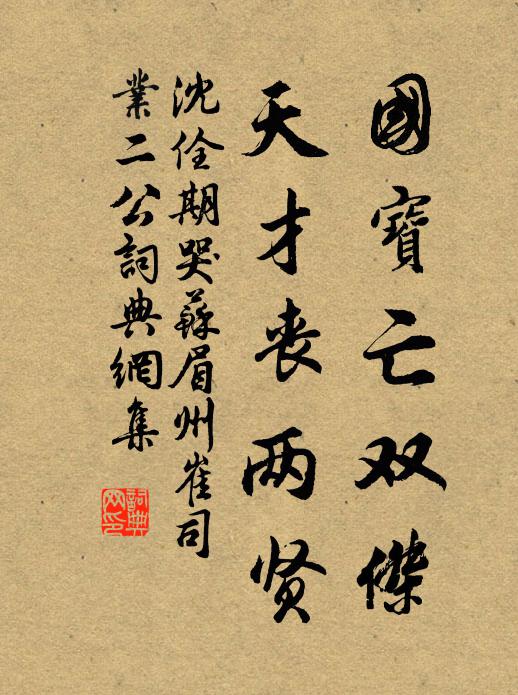 國寶亡双傑
天才丧两贤
沈佺期哭蘇眉州崔司
業二公詞典網集
詞典
网印